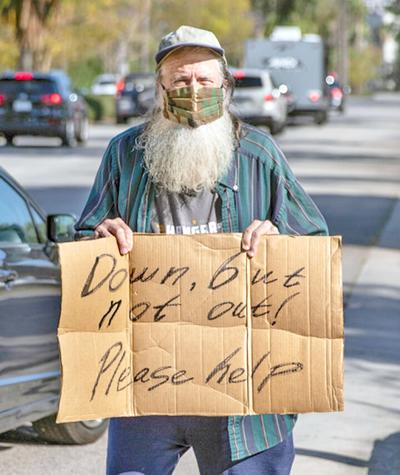 Down, but
not out!
Please help